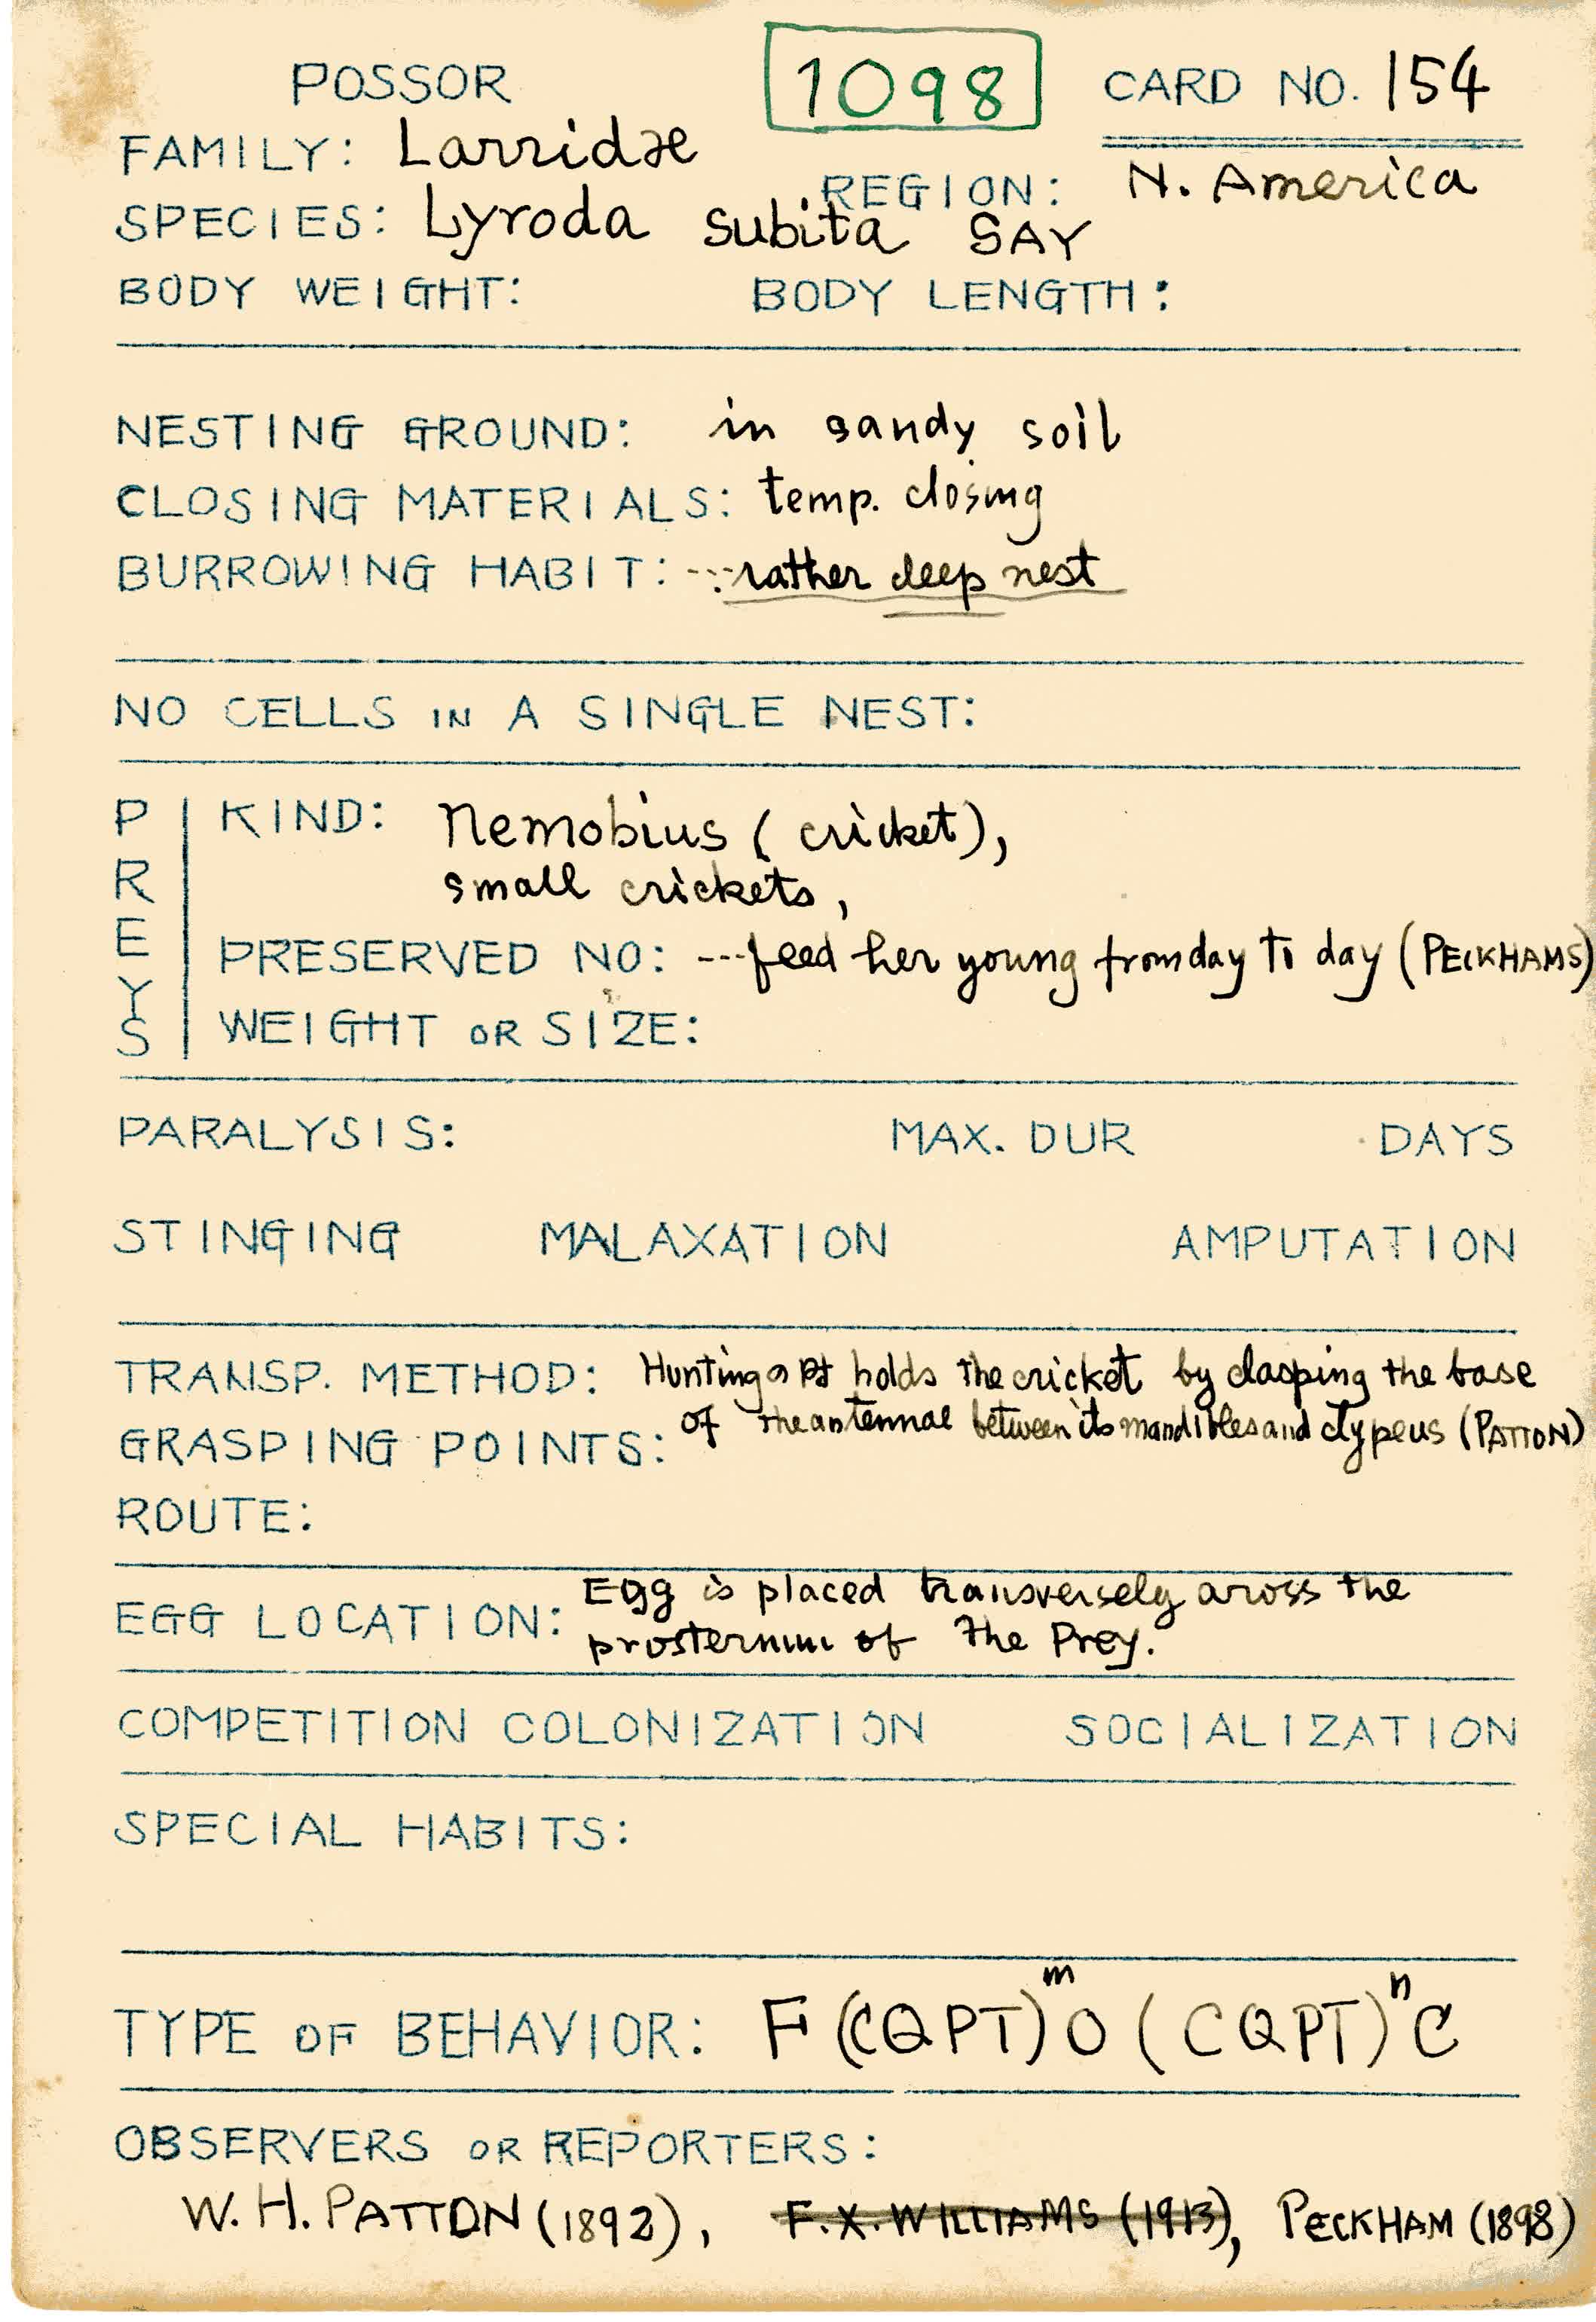 POSSOR 1098 CARD NO. 154
FAMILY: Larridæ
REGION: N. America
SPECIES: Lyroda subita SAY
BODY WEIGHT: BODY LENGTH:
NESTING GROUND: in sandy soil
CLOSING MATERIALS: temp. closing
BURROWING HABIT: ---rather deep nest
NO CELLS IN A SINGLE NEST:
PREYS
KIND: Nemobius (cricket),
small crickets,
PRESERVED NO: ---feed her young from day to day (PECKHAMS)
WEIGHT OR SIZE:
PARALYSIS: MAX. DUR DAYS
STINGING MALAXATION AMPUTATION
TRANSP. METHOD: Hunting holds the cricket by clasping the base
GRASPING POINTS: of the antennae between its mandibles and clypeus (PATTON)
ROUTE:
EGG LOCATION: Egg is placed transversely across the
prosternum of the Prey.
COMPETITION COLONIZATION SOCIALIZATION
SPECIAL HABITS:
TYPE OF BEHAVIOR: F(CQPT)^m O (CQPT)^n C
OBSERVERS OR REPORTERS:
W. H. PATTON (1892), F. X. WILLIAMS (1913), PECKHAM (1898)